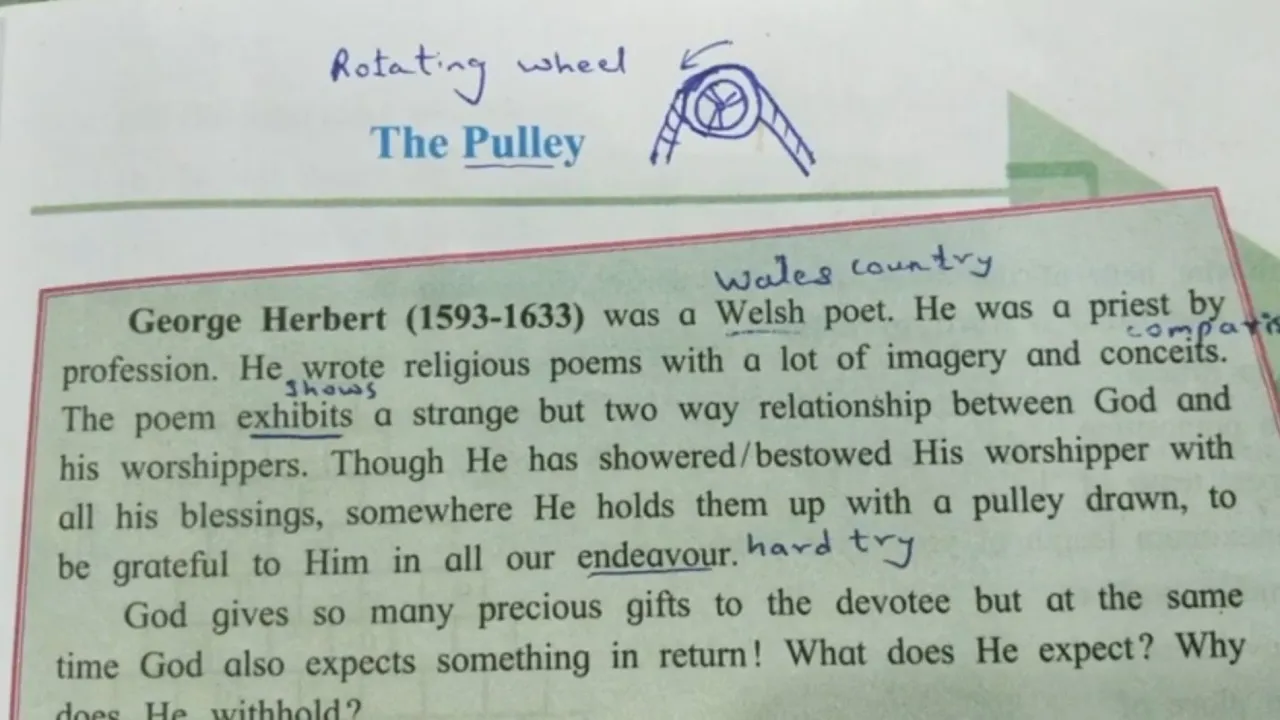 Rotating wheel
The Pulley
Wales country
George Herbert (1593-1633) was a Welsh poet. He was a priest by
profession. He wrote religious poems with a lot of imagery and conceits.
shows
The poem exhibits a strange but two way relationship between God and
his worshippers. Though He has showered/bestowed His worshipper with
all his blessings, somewhere He holds them up with a pulley drawn, to
be grateful to Him in all our endeavour. hard try
God gives so many precious gifts to the devotee but at the same
time God also expects something in return! What does He expect? Why
does He withhold?